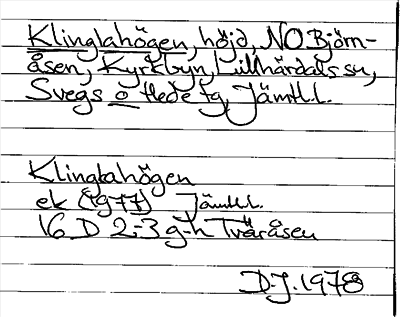 Klinglahögen, höjd, NO Björn-
åsen, Kyrkbyn, Lillhärdals sn,
Svegs o Hede tg, Jämtl.l.
Klinglahögen
ek (1977) Jämtl.l.
16 D 2-3 g-h Tväråsen
D-J. 1978